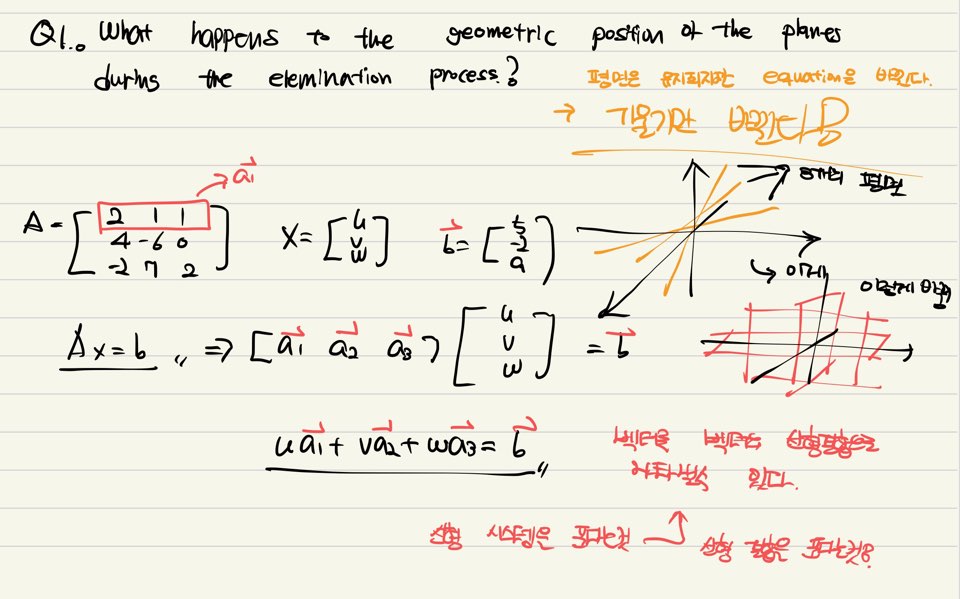 Q1. What happens to the geometric position of the planes
during the elemination process?
평면은 유지되지만 equation을 바뀐다.
→ 기울기만 바뀐다
a₁
A = [2 1 1
4 -6 0
-2 7 2]
X = [u
v
w]
b = [5
-2
9]
평면
이렇게
Ax = b ⇒ [a₁ a₂ a₃] [u
v
w] = b
ua₁ + va₂ + wa₃ = b
벡터을 벡터의 선형결합으로
나타낼수 있다.
선형 시스템은 푼다는것
선형 결합은 푼다는것?